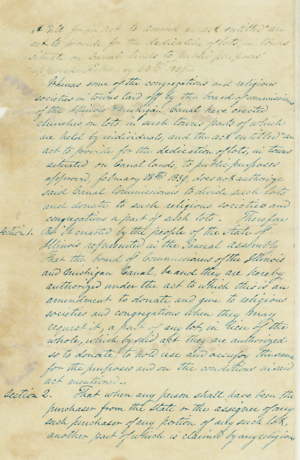 A Bill for an act to amend an act entitled an
act to provide for the dedication of lots, in towns
situate on Canal lands to public purposes
approved
Whereas some of the congregations and religious
societies in towns laid off by the board of commissioners
of the Illinois Michigan Canal have erected
churches on lots in such towns, parts of which
are held by individuals, and the act entitled an
act to provide for the dedication of lots, in towns
situated on Canal lands, to public purposes
approved, february 28th 1839, does not authorize
said Canal Commissioners to divide such lots
and donate to such religious societies and
congregations a part of such lots. Therefore
Section 1. Be it enacted by the people of the state of
Illinois represented in the General assembly
That the board of Commissioners of the Illinois
and Michigan Canal, be and they are hereby
authorized under the act to which this is an
amendment to donate and give to religious
societies and congregations when they may
request it, a part of any lot, in lieu of the
whole, which by this act they are authorized
so to donate, to hold use and occupy the same
for the purposes and on the conditions in said
act mentioned.
Section 2. That when any person shall have been the
purchaser from the State or the assignee of any
such purchaser of any portion of any such lot,
another part of which is claimed by any religious